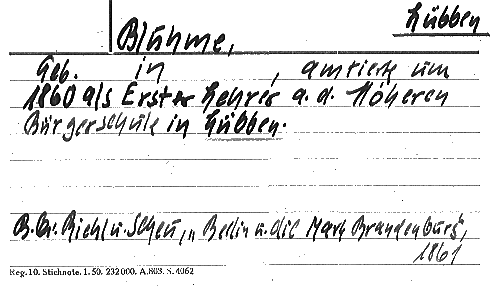 Lübben
Blühme,
Geb. in , amtierte um
1860 als Erster Lehrer a. d. Höheren
Bürgerschule in Lübben.
B. Gr. Riehl u. Scheu, „Berlin u. die Mark Brandenburg",
1861
Reg. 10. Stichnote. 1. 50. 232000. A. 803. S. 4062